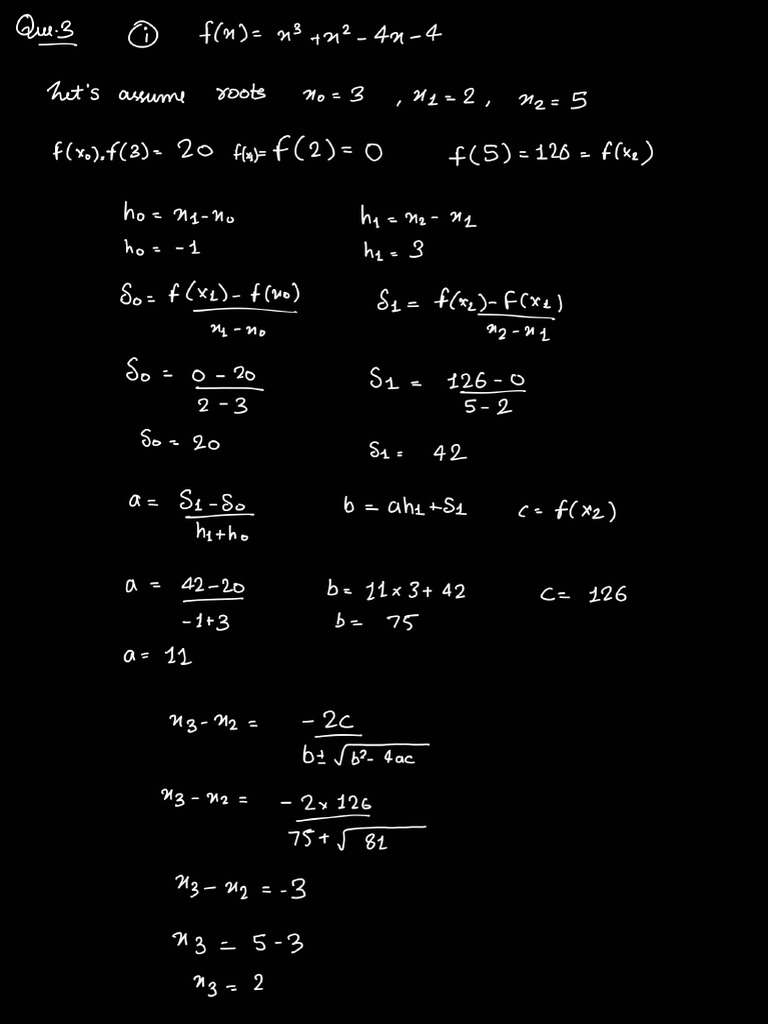 Que.3 ① f(x) = x³ + x² - 4x - 4
Let's assume roots x₀ = 3 , x₁ = 2 , x₂ = 5
f(x₀).f(3) = 20 f(x₁)= f(2) = 0 f(5) = 126 = f(x₂)
h₀ = x₁ - x₀ h₁ = x₂ - x₁
h₀ = -1 h₁ = 3
δ₀ = f(x₁) - f(x₀) / x₁ - x₀ δ₁ = f(x₂) - f(x₁) / x₂ - x₁
δ₀ = 0 - 20 / 2 - 3 δ₁ = 126 - 0 / 5 - 2
δ₀ = 20 δ₁ = 42
a = δ₁ - δ₀ / h₁ + h₀ b = ah₁ + δ₁ c = f(x₂)
a = 42 - 20 / -1 + 3 b = 11 × 3 + 42 C = 126
b = 75
a = 11
x₃ - x₂ = - 2c / b ± √b² - 4ac
x₃ - x₂ = - 2 × 126 / 75 + √81
x₃ - x₂ = -3
x₃ = 5 - 3
x₃ = 2